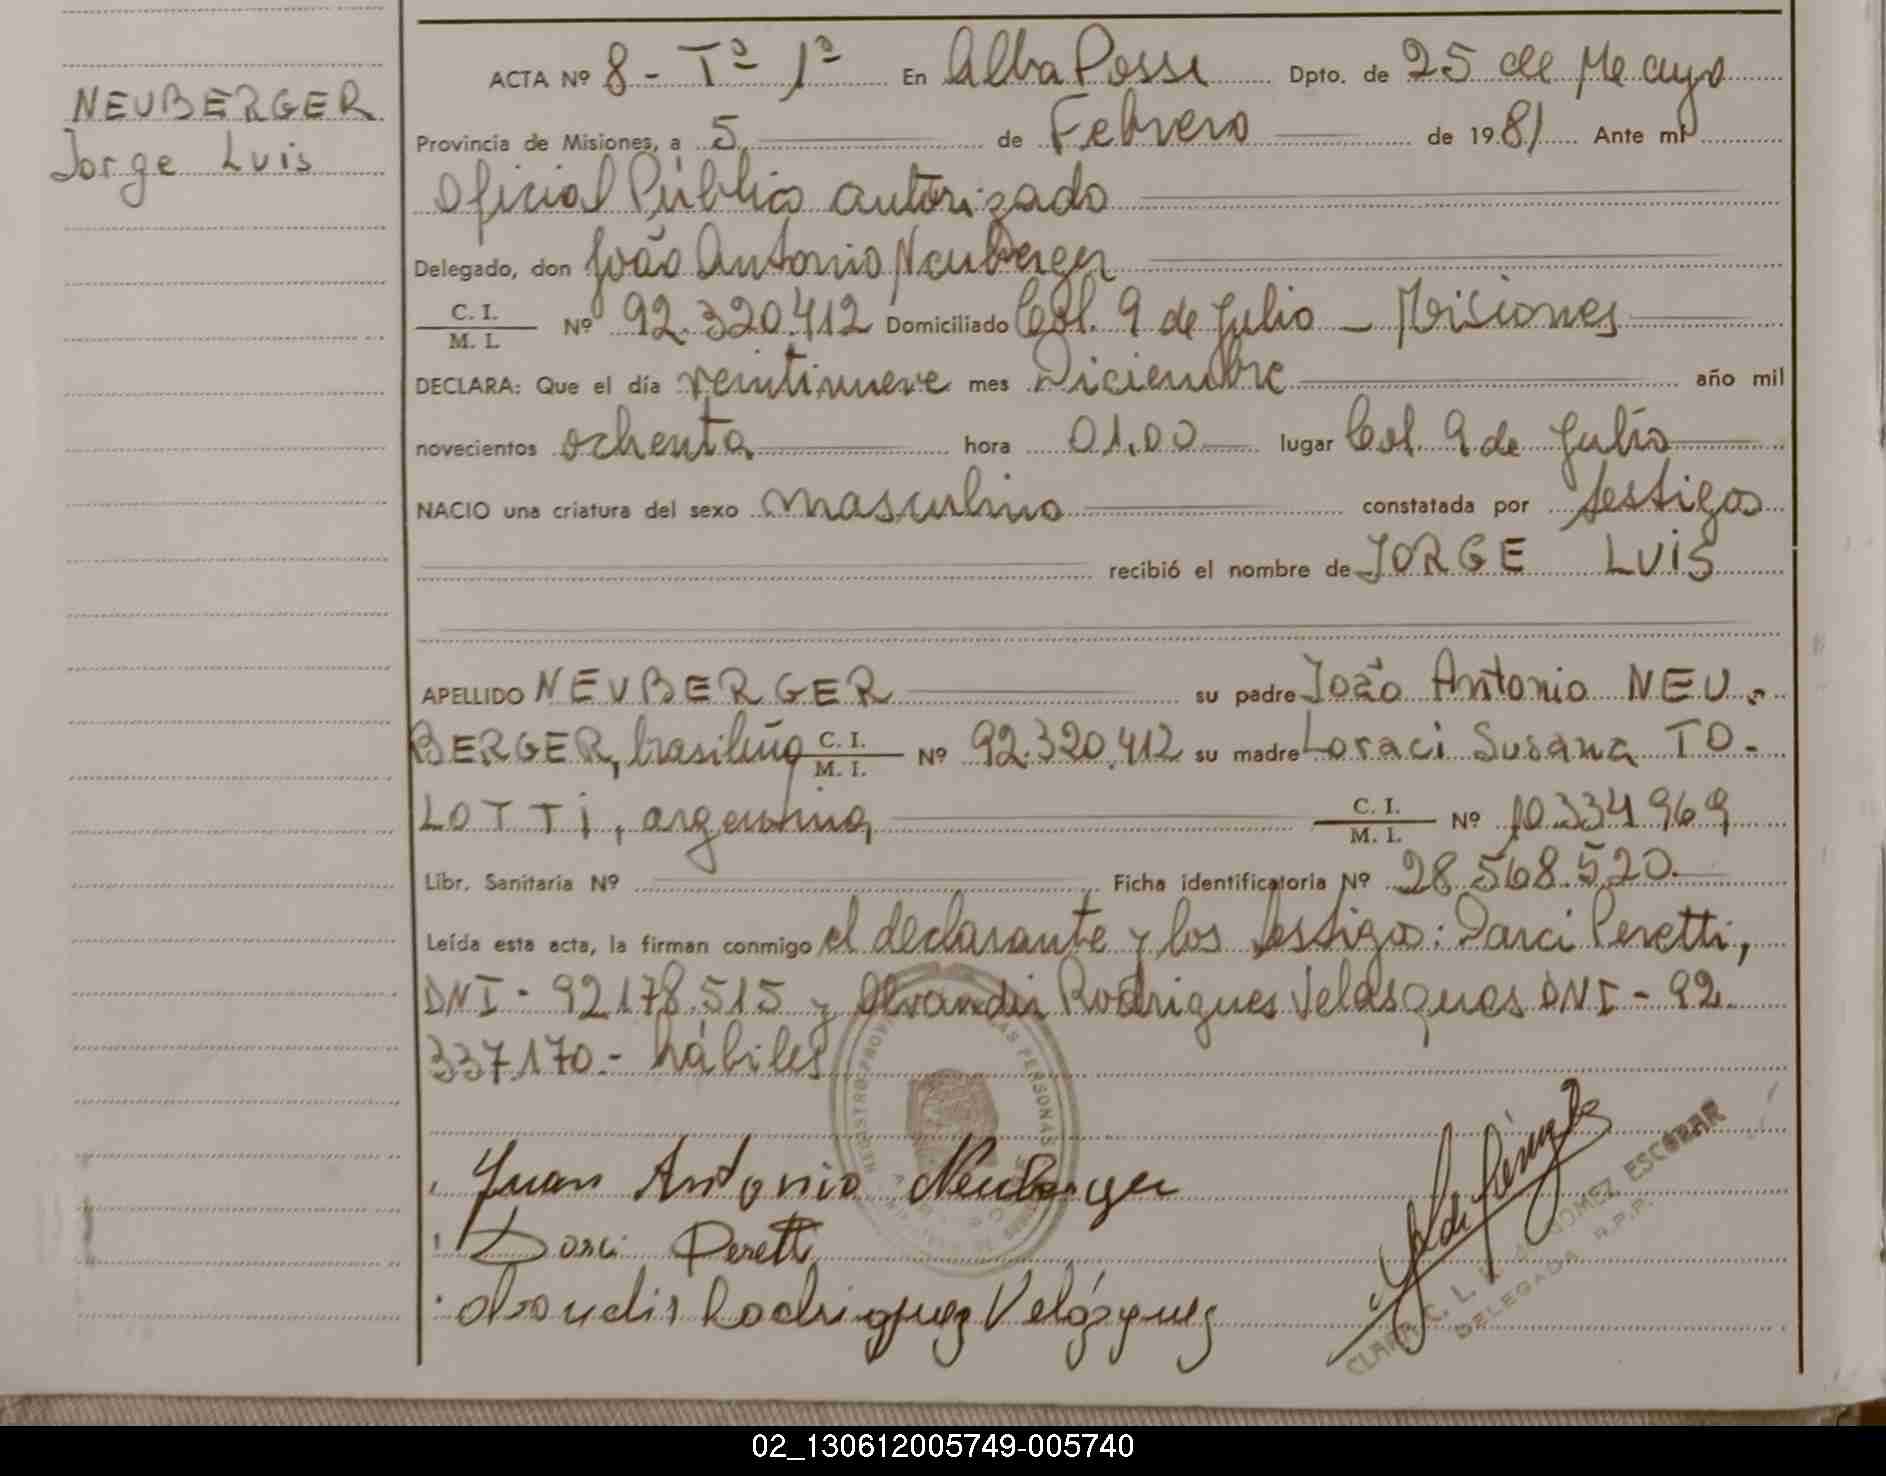 NEUBERGER
Jorge Luis
ACTA Nº 8 - Tº 1º En Alba Posse Dpto. de 25 de Mayo
Provincia de Misiones, a 5 de Febrero de 1981 Ante mí
Oficial Público autorizado
Delegado, don João Antonio Neuberger
C. I. / M. I. Nº 92.320.412 Domiciliado Col. 9 de Julio - Misiones
DECLARA: Que el día veintinueve mes Diciembre año mil
novecientos ochenta hora 01.00 lugar Col. 9 de Julio
NACIO una criatura del sexo masculino constatada por testigos
recibió el nombre de JORGE LUIS
APELLIDO NEUBERGER su padre João Antonio NEU-
BERGER, brasileño C. I. / M. I. Nº 92.320.412 su madre Loraci Susana TO-
LOTTI, argentina C. I. / M. I. Nº 10.334 969
Libr. Sanitaria Nº Ficha identificatoria Nº 28.568.520.
Leída esta acta, la firman conmigo el declarante y los testigos: Darci Peretti,
DNI - 92.178.515 y Alvandir Rodrigues Velasques DNI - 92.
337.170.- hábiles
Juan Antonio Neuberger
Darci Peretti
Rodriguez Velázquez
GOMEZ ESCOBAR
DELEGADA R.P.P.
02_130612005749-005740